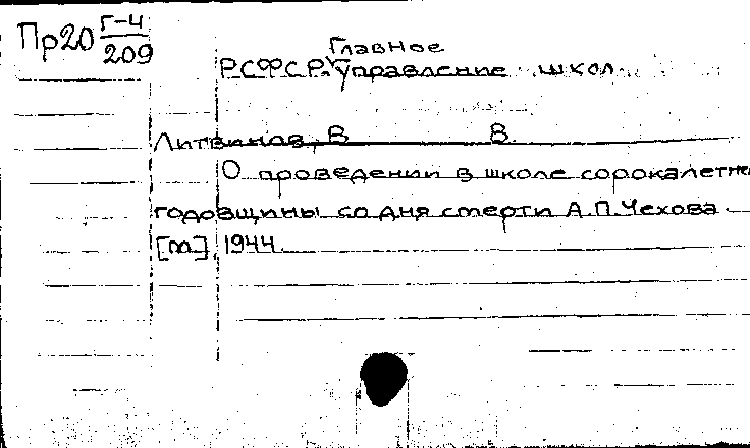 Пр20 Г-4/209
Главное
РСФСР. Управление школ.
Литвинов, В. В.
О проведении в школе сорокалетней
годовщины со дня смерти А.П. Чехова.
[м], 1944.